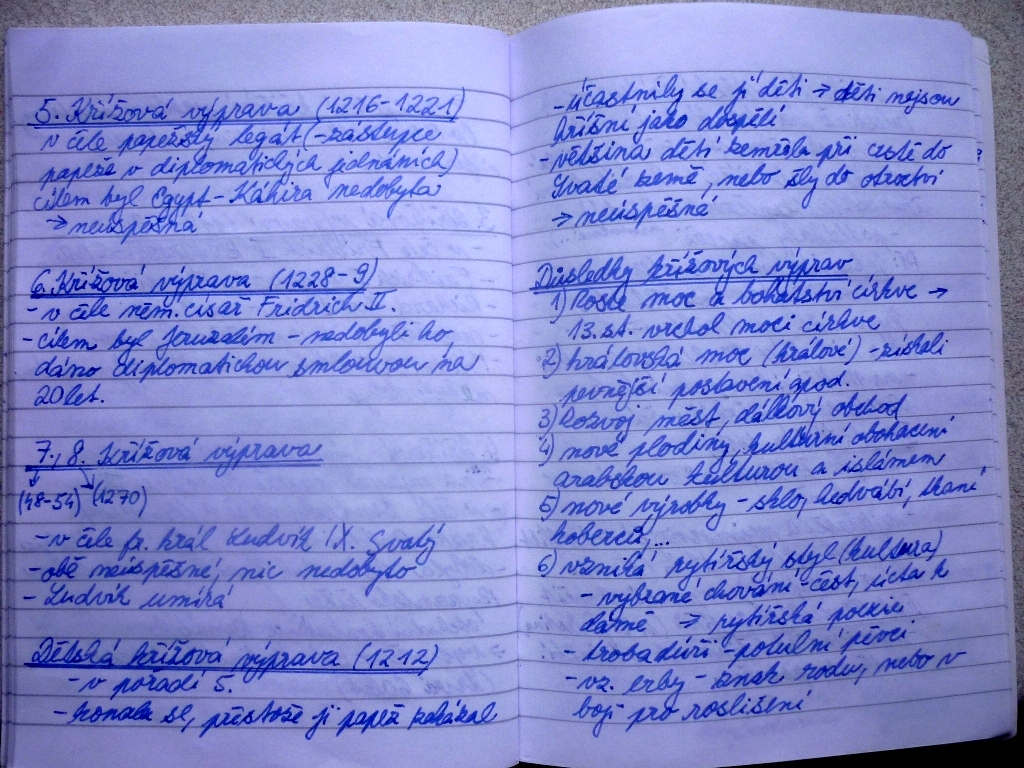 5. Křížová výprava (1216-1221)
v čele papežský legát (-zástupce
papeže v diplomatických jednáních)
cílem byl Egypt - Káhira nedobyta
→ neúspěšná
6. Křížová výprava (1228-9)
- v čele něm. císař Fridrich II.
- cílem byl Jeruzalém - nedobyli ho
dáno diplomatickou smlouvou na
20 let.
7., 8. Křížová výprava
(48-54) (1270)
- v čele fr. král Ludvík IX. Svatý
- obě neúspěšné, nic nedobyto
- Ludvík umírá
Dětská křížová výprava (1212)
- v pořadí 5.
- konala se, přestože ji papež zakázal
- účastnily se jí děti → děti nejsou
hříšní jako dospělí
- většina dětí zemřela při cestě do
Svaté země, nebo šly do otroctví
→ neúspěšné
Důsledky křížových výprav
1) Roste moc a bohatství církve →
13. st. vrchol moci církve
2) královská moc (králové) - získali
pevnější postavení gpod.
3) Rozvoj měst, dálkový obchod
4) nové plodiny, kulturní obohacení
arabskou kulturou a islámem
5) nové výrobky - sklo, hedvábí, tkané
koberce,...
6) vzniká rytířský styl (kultura)
- vybrané chování - čest, úcta k
dámě → rytířská poezie
- trobadúři - potulní pěvci
- vz. erby - znak rodu, nebo v
boji pro roslišení